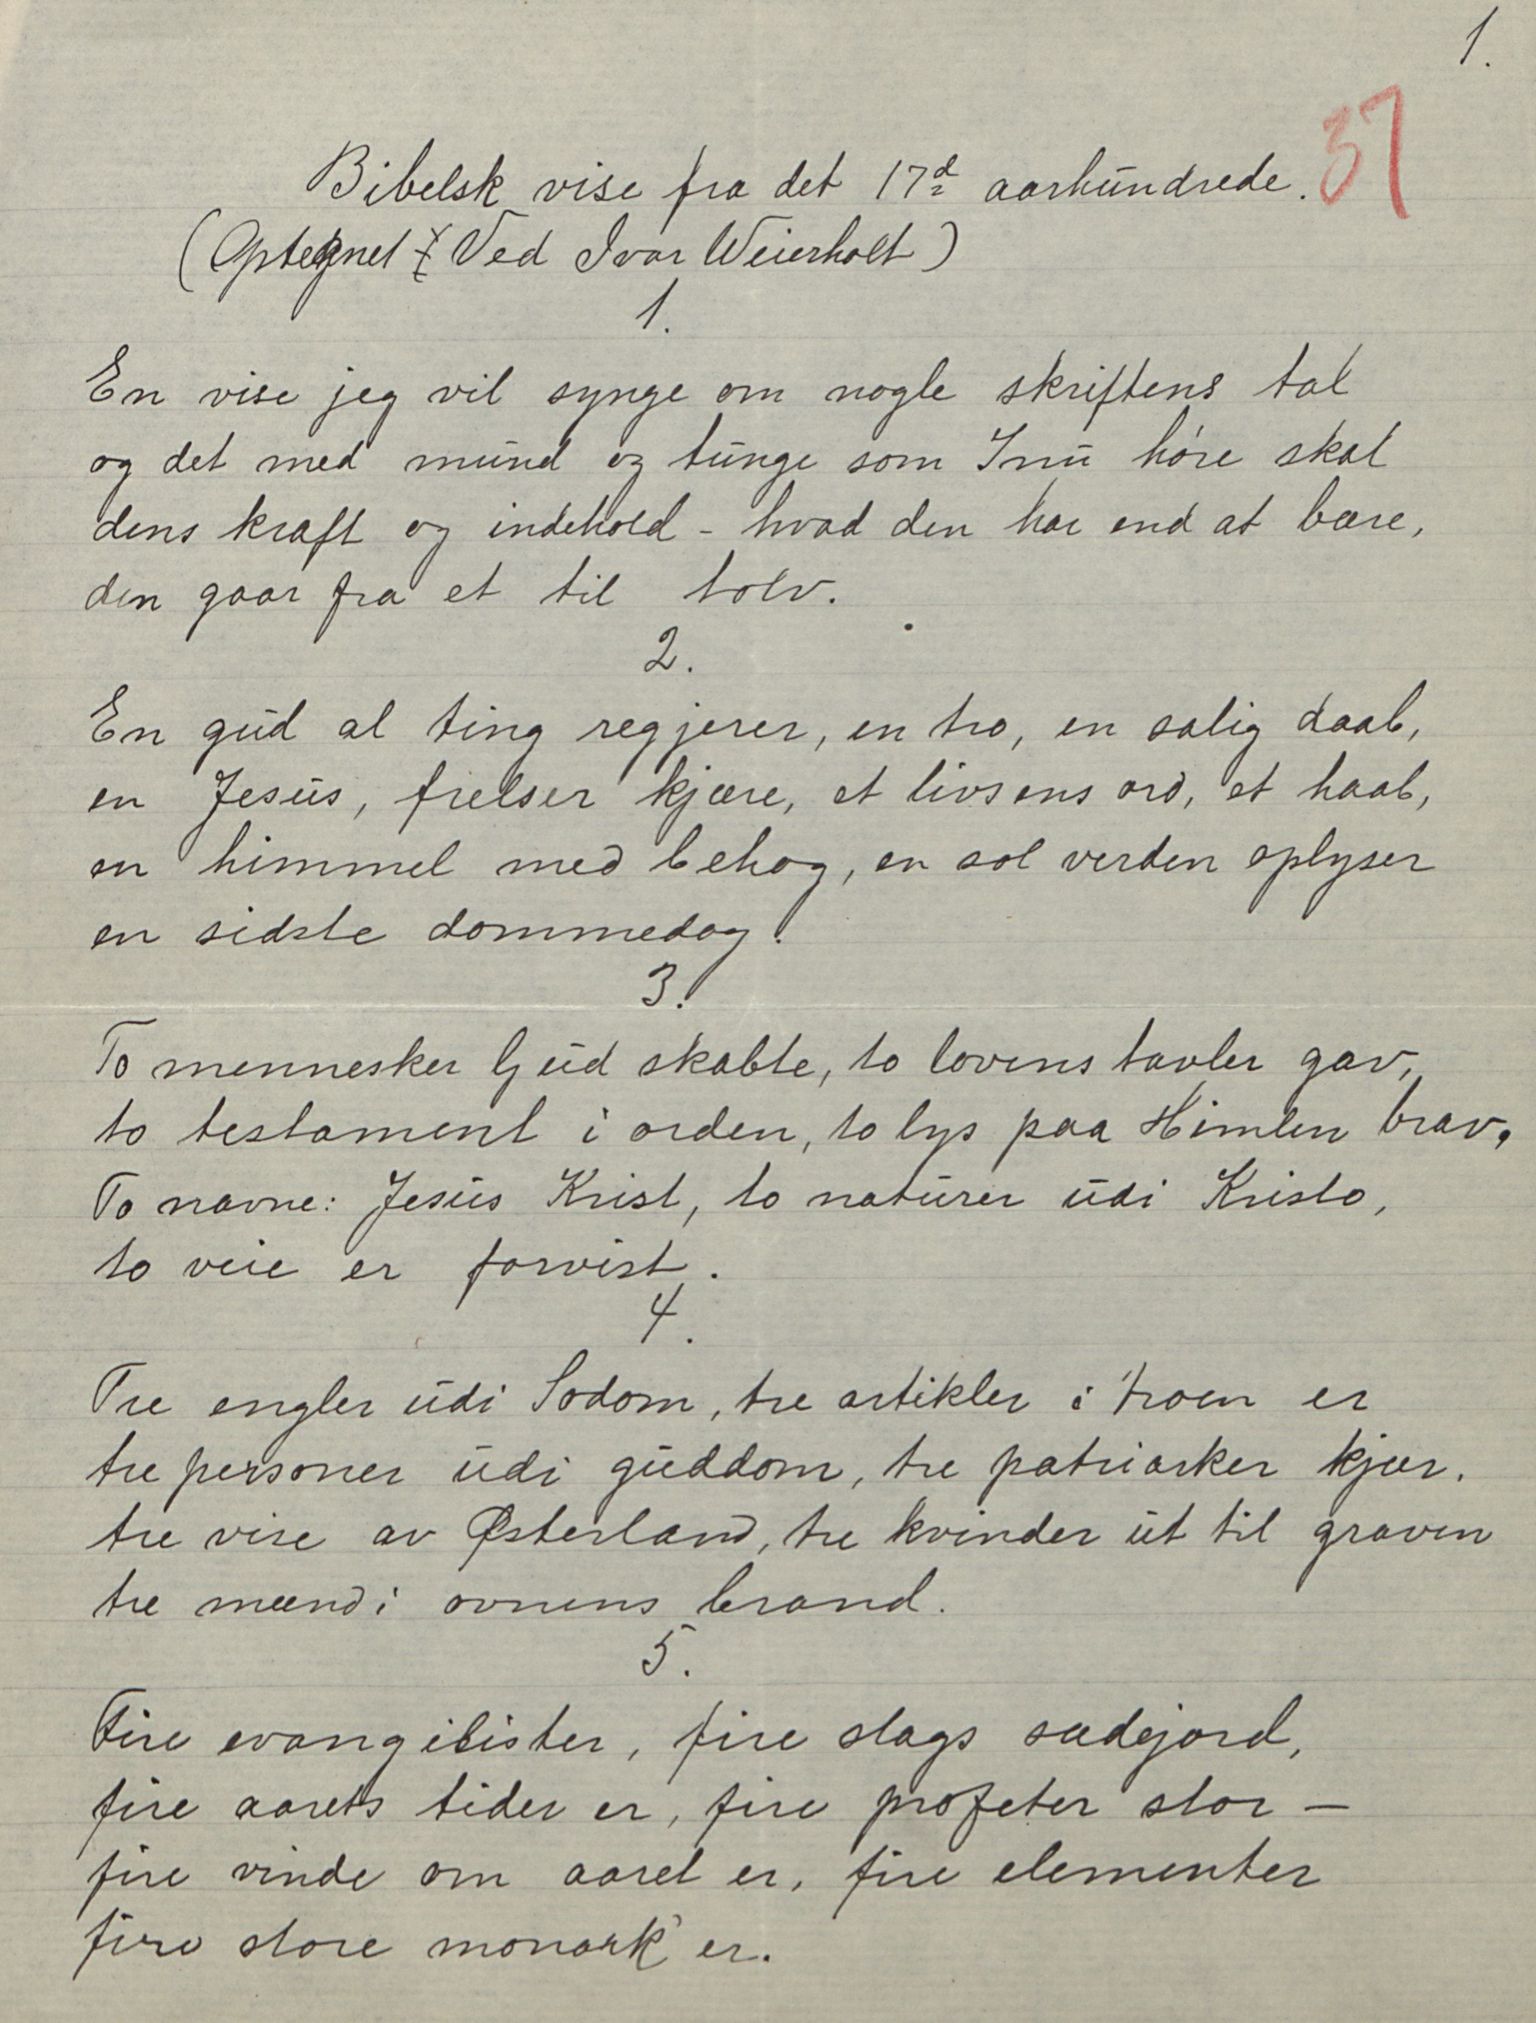 1.
37
Bibelsk vise fra det 17de aarhundrede.
(Optegnet Ved Ivar Weierholt)
1.
En vise jeg vil synge om nogle skriftens tal
og det med mund og tunge som I nu høre skal
dens kraft og indehold - hvad den har end at bære,
den gaar fra et til tolv.
2.
En gud al ting regjerer, en tro, en salig daab,
en Jesus, frelser kjære, et livsens ord, et haab,
en himmel med behag, en sol verden oplyser
en sidste dommedag.
3.
To mennesker Gud skabte, to lovens tavler gav,
to testament i orden, to lys paa Himlen brav,
To navne: Jesus Krist, to naturer udi Kristo,
to veie er forvist.
4.
Tre engler udi Sodom, tre artikler i troen er
tre personer udi guddom, tre patriarker kjær.
tre vise av Østerland, tre kvinder ut til graven
tre mænd i ovnens brand.
5.
Fire evangilister, fire slags sædejord,
fire aarets tider er, fire profeter stor –
fire vinde om aaret er, fire elementer
fire store monark'er.